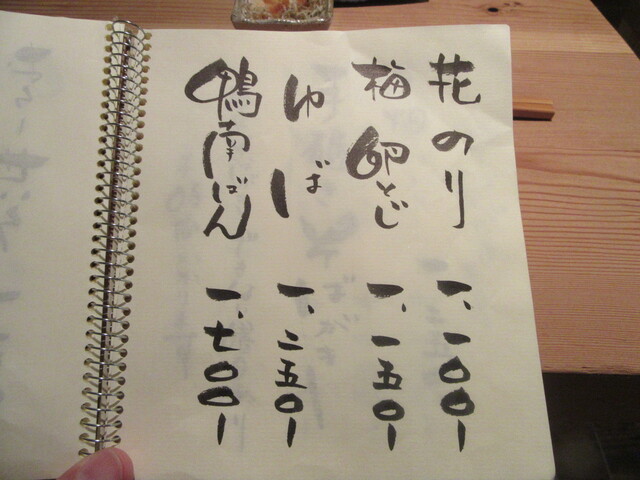 花のり 一、一〇〇ー
梅卵とじ 一、一五〇ー
ゆば 一、二五〇ー
鴨南ばん 一、七〇〇ー